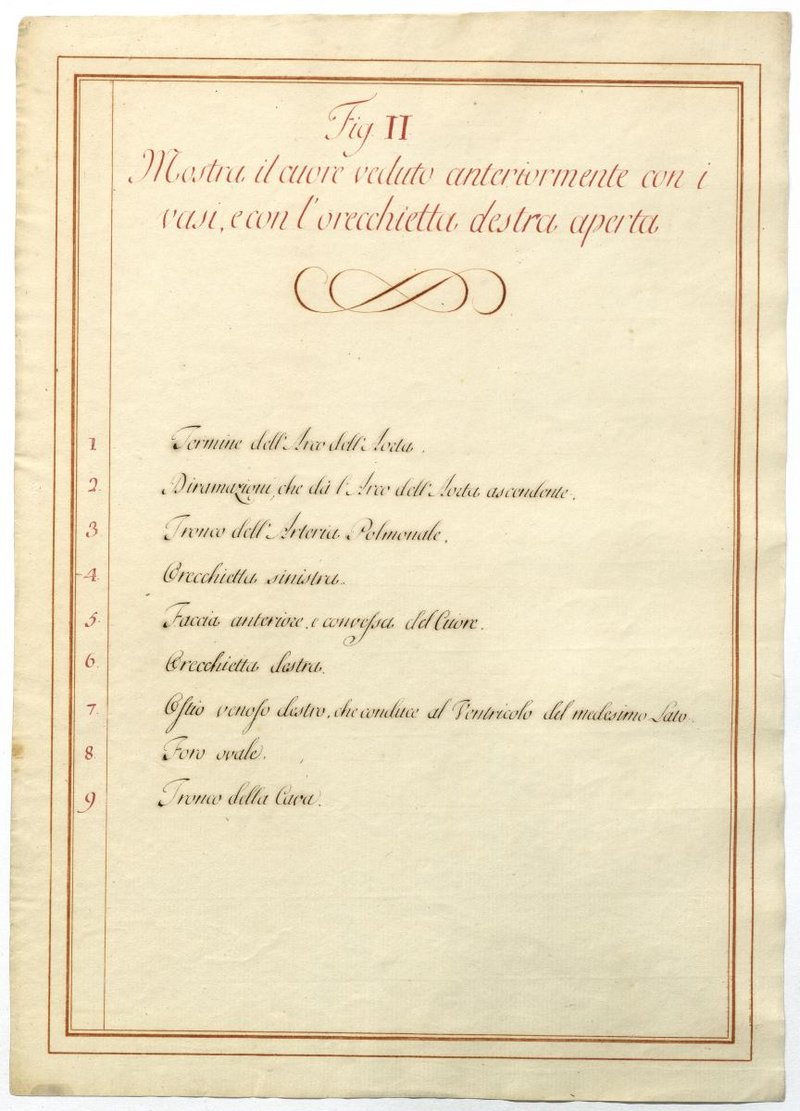 Fig II
Mostra il cuore veduto anteriormente con i
vasi, e con l'orecchietta destra aperta
1. Termine dell'Arco dell'Aorta.
2. Diramazioni, che dà l'Arco dell'Aorta ascendente.
3 Tronco dell'Arteria Polmonale.
4. Orecchietta sinistra.
5. Faccia anteriore, e convessa del Cuore.
6. Orecchietta destra.
7. Ostio venoso destro, che conduce al Ventricolo del medesimo Lato.
8 Foro ovale.
9 Tronco della Cava.